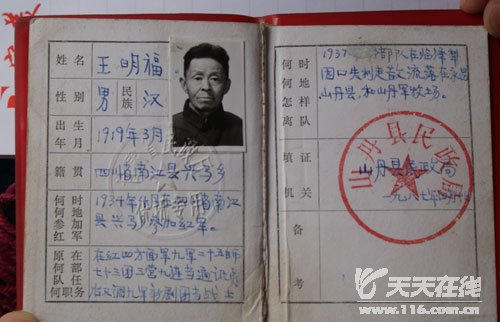 姓名 王明福
性别 男 民族 汉
出生年月 1919年3月
籍贯 四川省南江县兴马乡
何时何地参加红军 1934年 月在四川南江
县兴马乡参加红军。
原在何部队任何职务 在红四方面军九军二十五师
七十三团三营九连当通讯员
后又调九军新剧团当战士
何时何地怎样离队 1937 部队在临泽
因 失利走散流落在永昌
山丹县,和山丹军牧场。
填证机关 山丹县民政局
一九八七年
山丹县民政局
备考
天天在线
www.116.com.cn